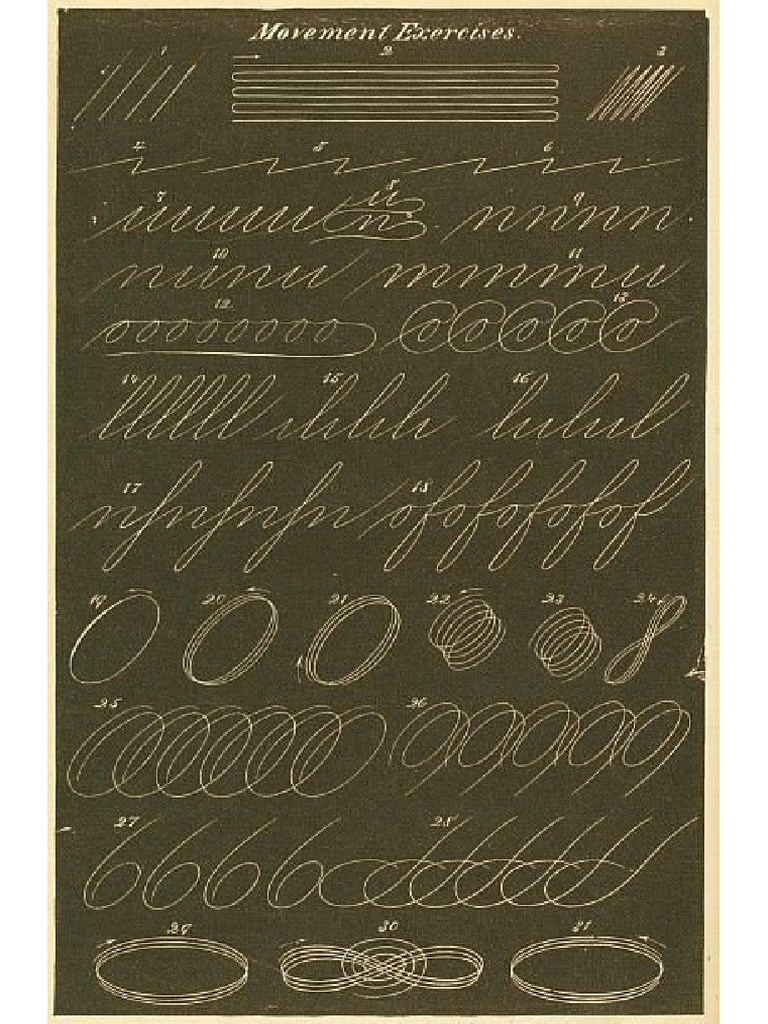 Movement Exercises.
1 2 3
4 5 6
7 uuuuu 8 u n 9 nnnnn
10 nunu 11 mmmmu
12 oooooooo 13 ooooo
14 llllll 15 ililil 16 lilil
17 npnpnpn 18 ofofofofof
19 20 21 22 23 24
25 26
27 28
29 30 31